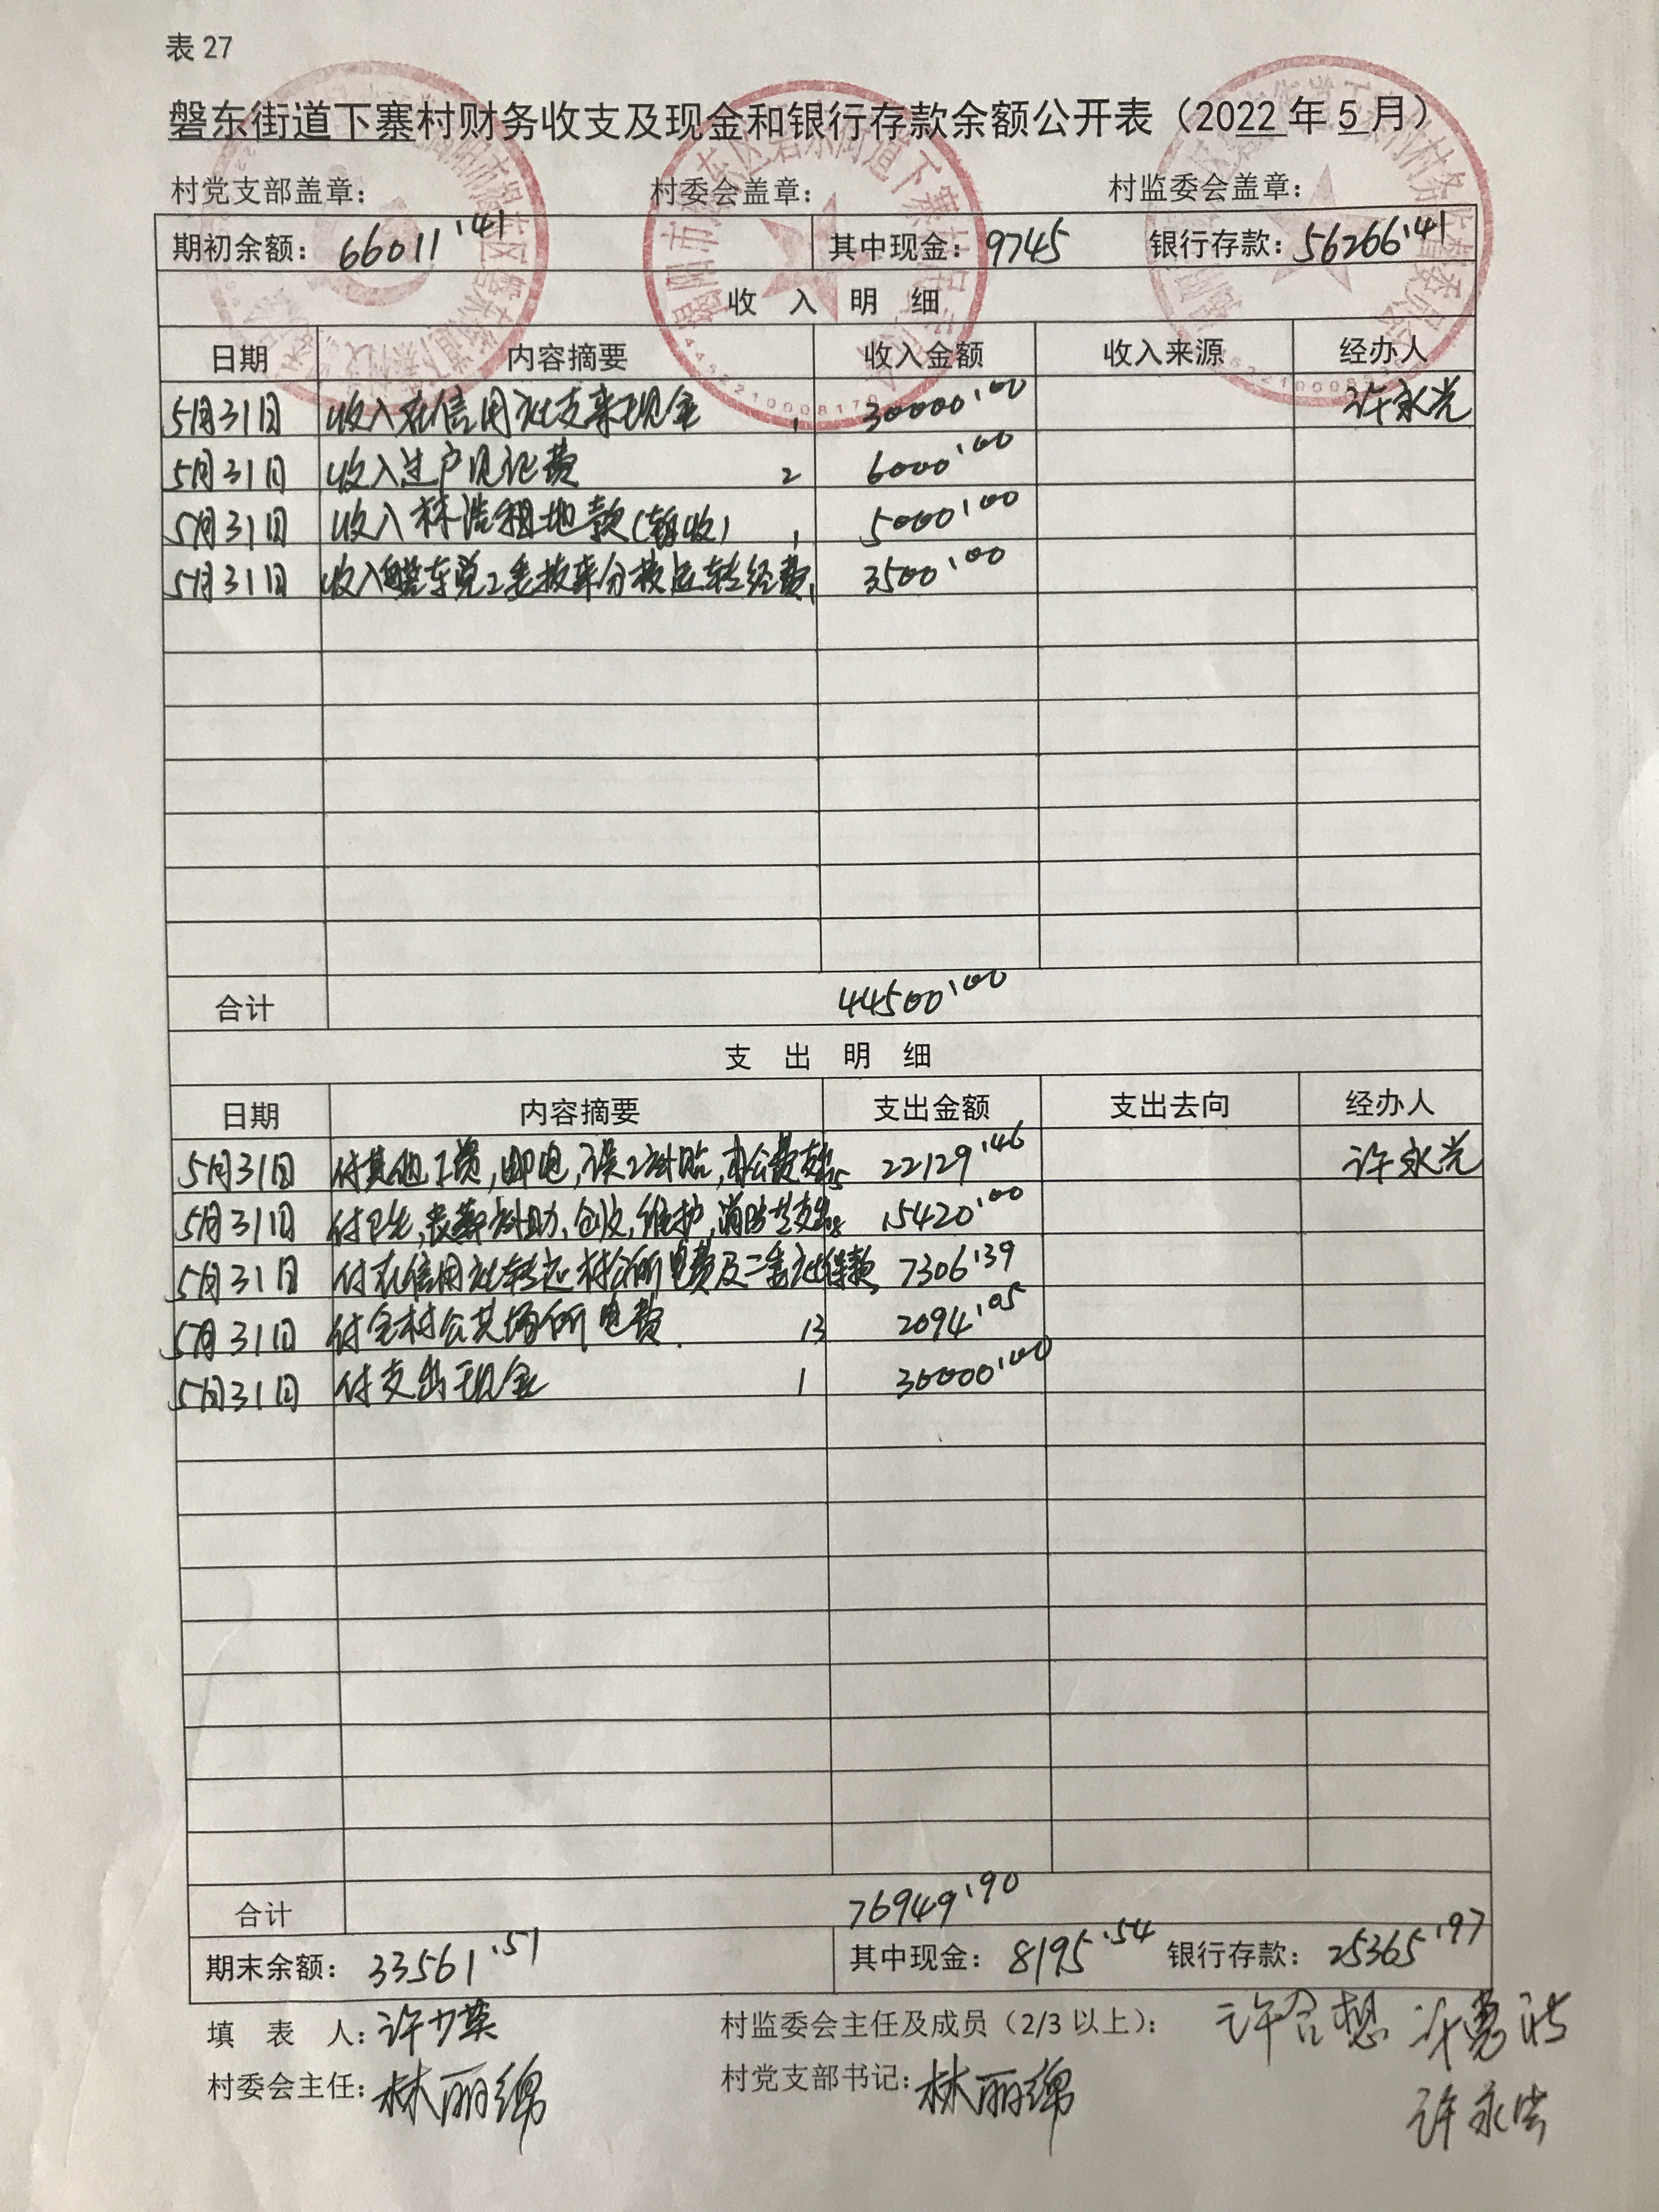 表 27
磐东街道下寨村财务收支及现金和银行存款余额公开表（2022 年 5 月）
村党支部盖章： 村委会盖章： 村监委会盖章：
期初余额： 66011.41 其中现金： 9745 银行存款： 56266.41
收 入 明 细
日期 内容摘要 收入金额 收入来源 经办人
5月31日 收入在信用社支来现金 1 30000.00 许永光
5月31日 收入过户见证费 2 6000.00
5月31日 收入林浩租地款(暂收) 1 5000.00
5月31日 收入 运转经费 1 3500.00
合计 44500.00
支 出 明 细
日期 内容摘要 支出金额 支出去向 经办人
5月31日 付其他工资,邮电,误工补贴,办公费支出 22129.46 许永光
5月31日 付卫生,丧葬补助, 维护,消防 支出 15420.00
5月31日 付在信用社转还村公所电费及二委社保款 7306.39
5月31日 付全村公共场所电费 13 2094.05
5月31日 付支出现金 1 30000.00
合计 76949.90
期末余额： 33561.51 其中现金： 8195.54 银行存款： 25365.97
填 表 人： 许少英 村监委会主任及成员（2/3 以上）： 许合想
村委会主任： 林丽绵 村党支部书记： 林丽绵
许永